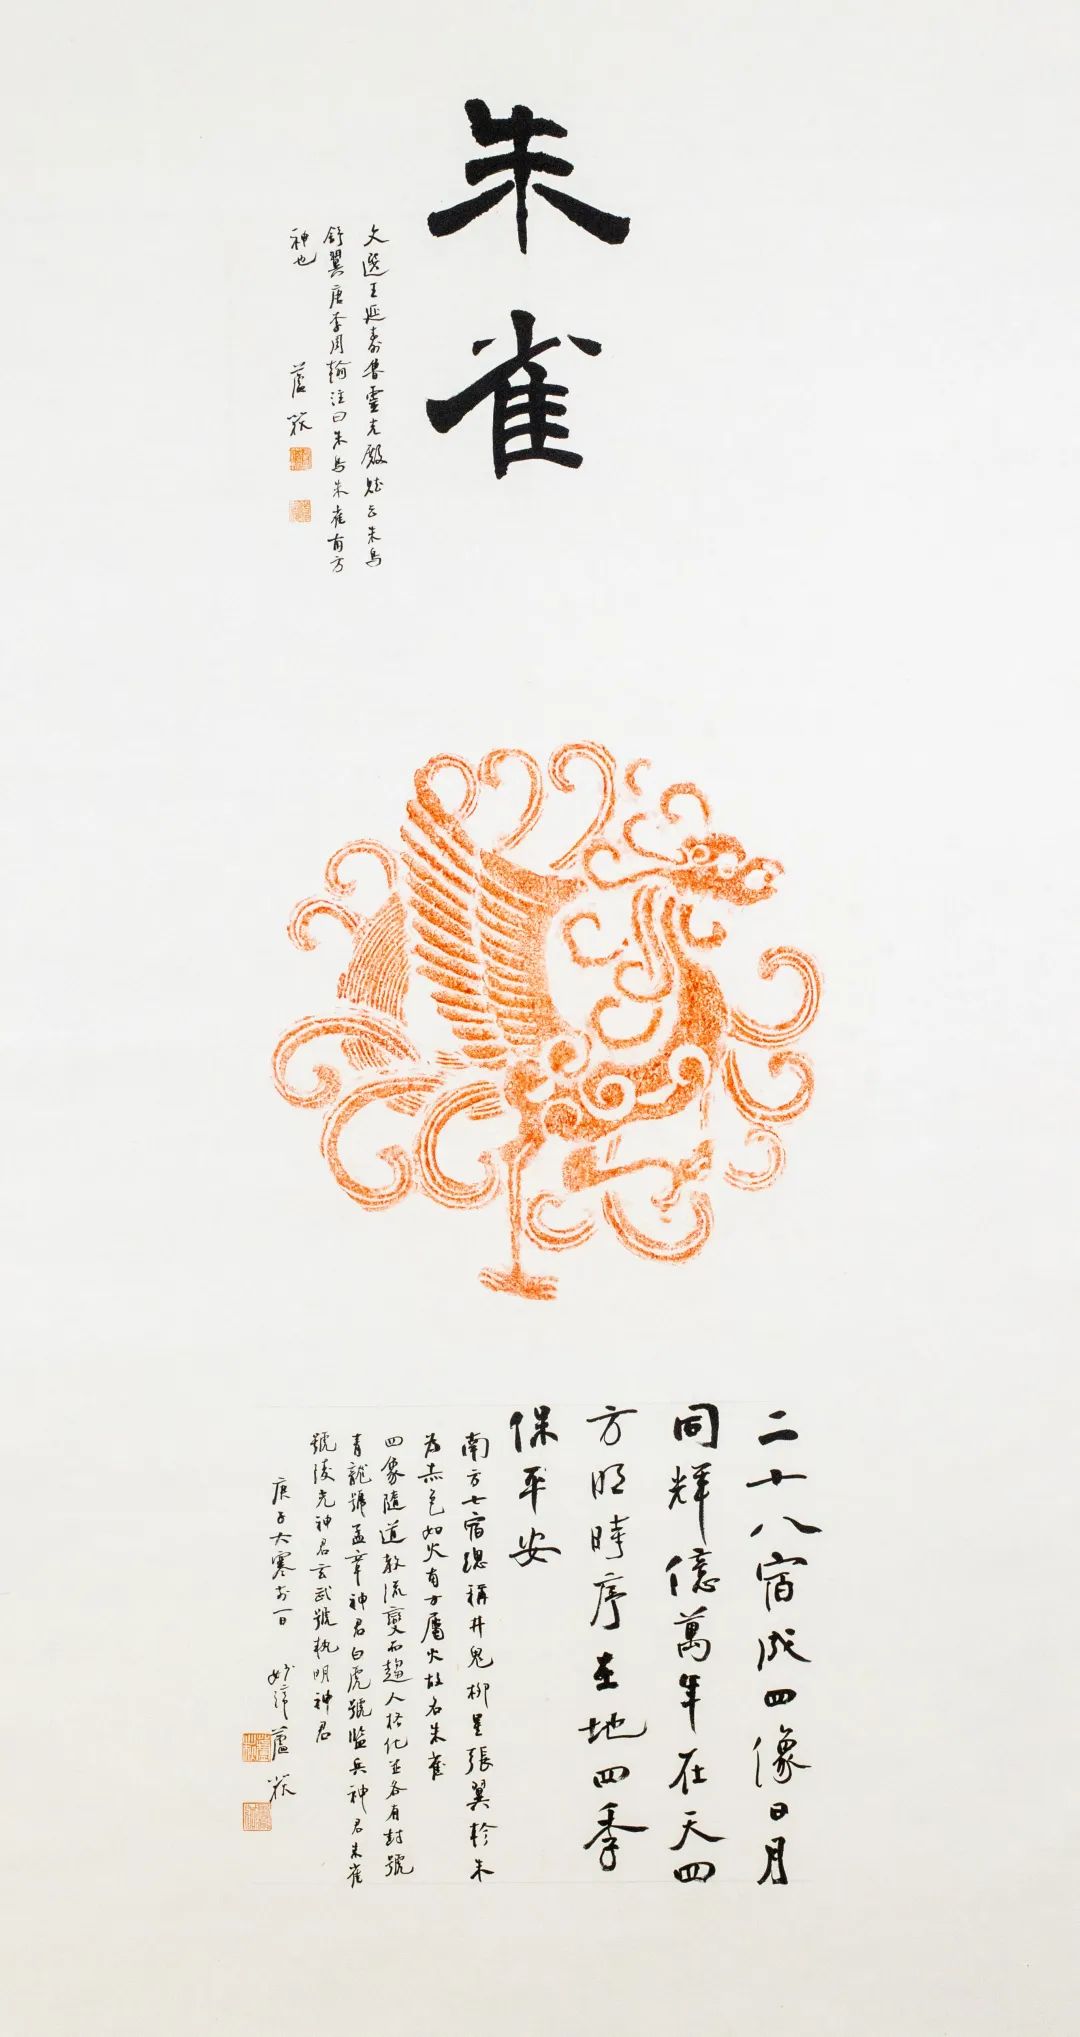 朱雀
文選王延壽魯靈光殿賦云朱鳥
舒翼唐李周翰注曰朱鳥朱雀南方
神也
二十八宿成四像日月
同輝億萬年在天四
方明時序在地四季
保平安
南方七宿總稱井鬼柳星張翼軫朱
為赤色如火南方屬火故名朱雀
四象隨道教流變而趨人格化並各有封號
青龍號孟章神君白虎號監兵神君朱雀
號陵光神君玄武號執明神君
庚子大寒前一日